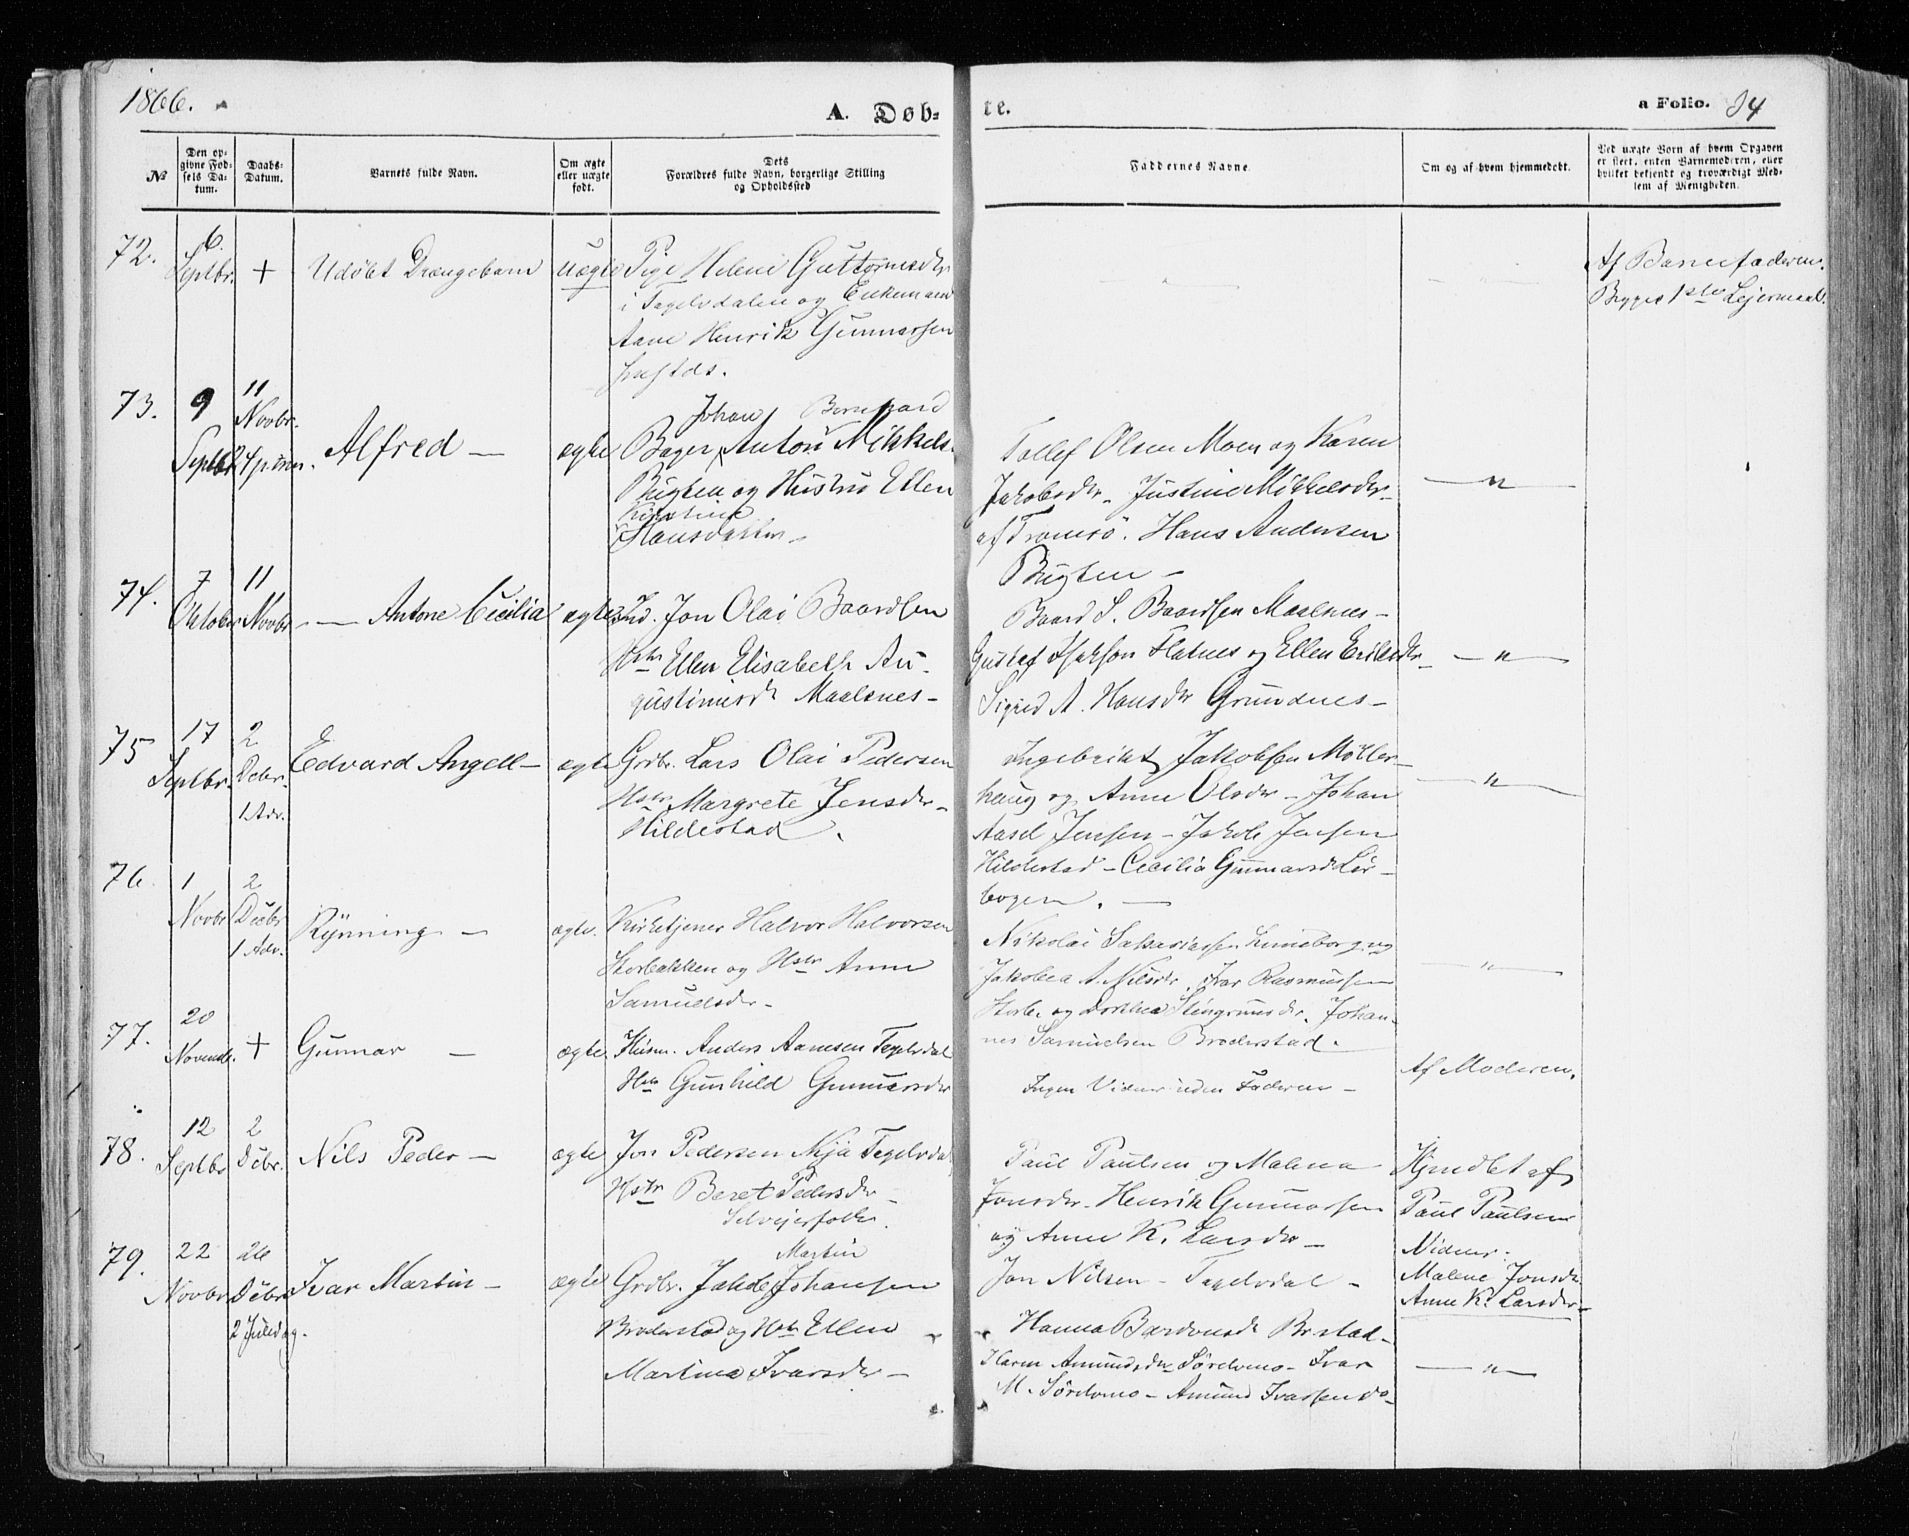 1866.
A. Døb-
te.
a Folio. 34
№
Den op-
givne Fød-
sels Da-
tum.
Daabs-
Datum.
Barnets fulde Navn.
Om ægte
eller uægte
født.
Dets
Forældres fulde Navn, borgerlige Stilling
og Opholdssted
Faddernes Navne.
Om og af hvem hjemmedøbt.
Ved uægte Børn af hvem Opgaven
er skeet, enten Barnemoderen, eller
hvilket bekjendt og troværdigt Med-
lem af Menigheden.
72.
6.
Septbr.
+
Udøbt Drengebarn
uægte
Pige Helene Guttormsdr.
i Tagelvdalen og Enkemand
Aane Henrik Gunnarsen
Af Barnefaderen.
Begges 1ste Lejermaal.
73.
9
Septbr
11
Novbr.
Alfred —
ægte
Johan Bernhard
Bager Anton Mikkels.
Bugten og Hustru Ellen
Kirstine
Hansdatter —
Tollef Olsen Moen og Karen
Jakobsdr. Justine Mikkelsdr.
af Tromsö. Hans Andersen
Bugten —
— " —
74.
7
Oktober
11
Novbr
— Antone Cecilia
ægte
Ind. Jon Olai Baardsen
Hstr Ellen Elisabeth Au-
gustinusdr Maalsnes —
Baard S. Baardsen Maalsnes —
Gustaf Isaksen Flatnes og Ellen Eriksdr
Sigrid A. Hansdr Grundnes —
— " —
75
17
Septbr.
2
Debr.
1 Adv.
Edvard Angell —
ægte
Grdbr. Lars Olai Pedersen
Hstr Margrete Jensdr —
Hildestad.
Ingebrikt Jakobsen Möller-
haug og Anne Olsdr — Johan
Axsel Jensen — Jakob Jensen
Hildestad — Cecilia Gunnarsdr Lör-
bogen. —
— " —
76.
1
Novbr
2
Debr
1 Adv.
Rynning —
ægte.
Kirketjener Halvor Halvorsen
Storbakken og Hstr Anne
Samuelsdr —
Nikolai Sakariassen Lenneborg og
Jakobea A. Nilsdr. Ivar Rasmussen
Storb. og Dorthea Stengrimsdr. Johan-
nes Samuelsen Broderstad.
— " —
77.
20
Novemb.
+
Gunnar —
ægte
Husm. Anders Aanesen Tagelvdal
Hstr Gunhild Gunnarsdr
Ingen Vidner uden Faderen —
Af Moderen.
78.
12
Septbr
2
Debr.
Nils Peder —
ægte
Jon Pedersen Nyja Tagelvdal
Hstr Beret Pedersdr —
Selvejerfolk.
Paul Paulsen og Malena
Jonsdr. Henrik Gunnarsen
og Anne K. Larsdr —
Jon Nilsen — Tagelvdal —
Hjmdbt af
Paul Paulsen
Vidner.
Malene Jonsdr
Anne K. Larsdr —
79.
22
Novbr
26
Debr
2 Juledag.
Ivar Martin —
ægte
Martin
Grdbr. Jakob Johansen
Broderstad og Hstr Ellen
Martina Ivarsdr —
Hanna Bardonsdr Brstad —
Karen Amundsdr Sörelvmo — Ivar
M. Sörelvmo — Amund Ivarsen do —
— " —